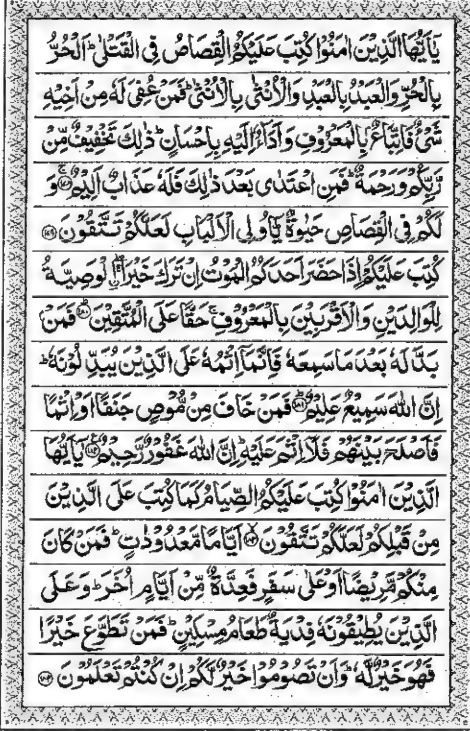 يٰٓاَيُّهَا الَّذِيْنَ اٰمَنُوْا كُتِبَ عَلَيْكُمُ الْقِصَاصُ فِى الْقَتْلٰىؕ اَلْحُرُّ
بِالْحُرِّ وَالْعَبْدُ بِالْعَبْدِ وَالْاُنْثٰى بِالْاُنْثٰىؕ فَمَنْ عُفِىَ لَهٗ مِنْ اَخِيْهِ
شَىْءٌ فَاتِّبَاعٌۢ بِالْمَعْرُوْفِ وَاَدَآءٌ اِلَيْهِ بِاِحْسَانٍؕ ذٰلِكَ تَخْفِيْفٌ مِّنْ
رَّبِّكُمْ وَرَحْمَةٌؕ فَمَنِ اعْتَدٰى بَعْدَ ذٰلِكَ فَلَهٗ عَذَابٌ اَلِيْمٌۚ‏﴿۱۷۸﴾ وَ
لَكُمْ فِى الْقِصَاصِ حَيٰوةٌ يّٰٓاُولِى الْاَلْبَابِ لَعَلَّكُمْ تَتَّقُوْنَ ﴿۱۷۹﴾
كُتِبَ عَلَيْكُمْ اِذَا حَضَرَ اَحَدَكُمُ الْمَوْتُ اِنْ تَرَكَ خَيْرَا ۖۚ اۨلْوَصِيَّةُ
لِلْوَالِدَيْنِ وَالْاَقْرَبِيْنَ بِالْمَعْرُوْفِۚ حَقًّا عَلَى الْمُتَّقِيْنَؕ ﴿۱۸۰﴾ فَمَنْۢ
بَدَّلَهٗ بَعْدَ مَا سَمِعَهٗ فَاِنَّمَآ اِثْمُهٗ عَلَى الَّذِيْنَ يُبَدِّلُوْنَهٗؕ
اِنَّ اللّٰهَ سَمِيْعٌ عَلِيْمٌؕ ﴿۱۸۱﴾ فَمَنْ خَافَ مِنْ مُّوْصٍ جَنَفًا اَوْ اِثْمًا
فَاَصْلَحَ بَيْنَهُمْ فَلَآ اِثْمَ عَلَيْهِؕ اِنَّ اللّٰهَ غَفُوْرٌ رَّحِيْمٌ ﴿۱۸۲﴾ يٰٓاَيُّهَا
الَّذِيْنَ اٰمَنُوْا كُتِبَ عَلَيْكُمُ الصِّيَامُ كَمَا كُتِبَ عَلَى الَّذِيْنَ
مِنْ قَبْلِكُمْ لَعَلَّكُمْ تَتَّقُوْنَۙ ﴿۱۸۳﴾ اَيَّامًا مَّعْدُوْدٰتٍؕ فَمَنْ كَانَ
مِنْكُمْ مَّرِيْضًا اَوْ عَلٰى سَفَرٍ فَعِدَّةٌ مِّنْ اَيَّامٍ اُخَرَؕ وَعَلَى
الَّذِيْنَ يُطِيْقُوْنَهٗ فِدْيَةٌ طَعَامُ مِسْكِيْنٍؕ فَمَنْ تَطَوَّعَ خَيْرًا
فَهُوَ خَيْرٌ لَّهٗؕ وَاَنْ تَصُوْمُوْا خَيْرٌ لَّكُمْ اِنْ كُنْتُمْ تَعْلَمُوْنَ ﴿۱۸۴﴾